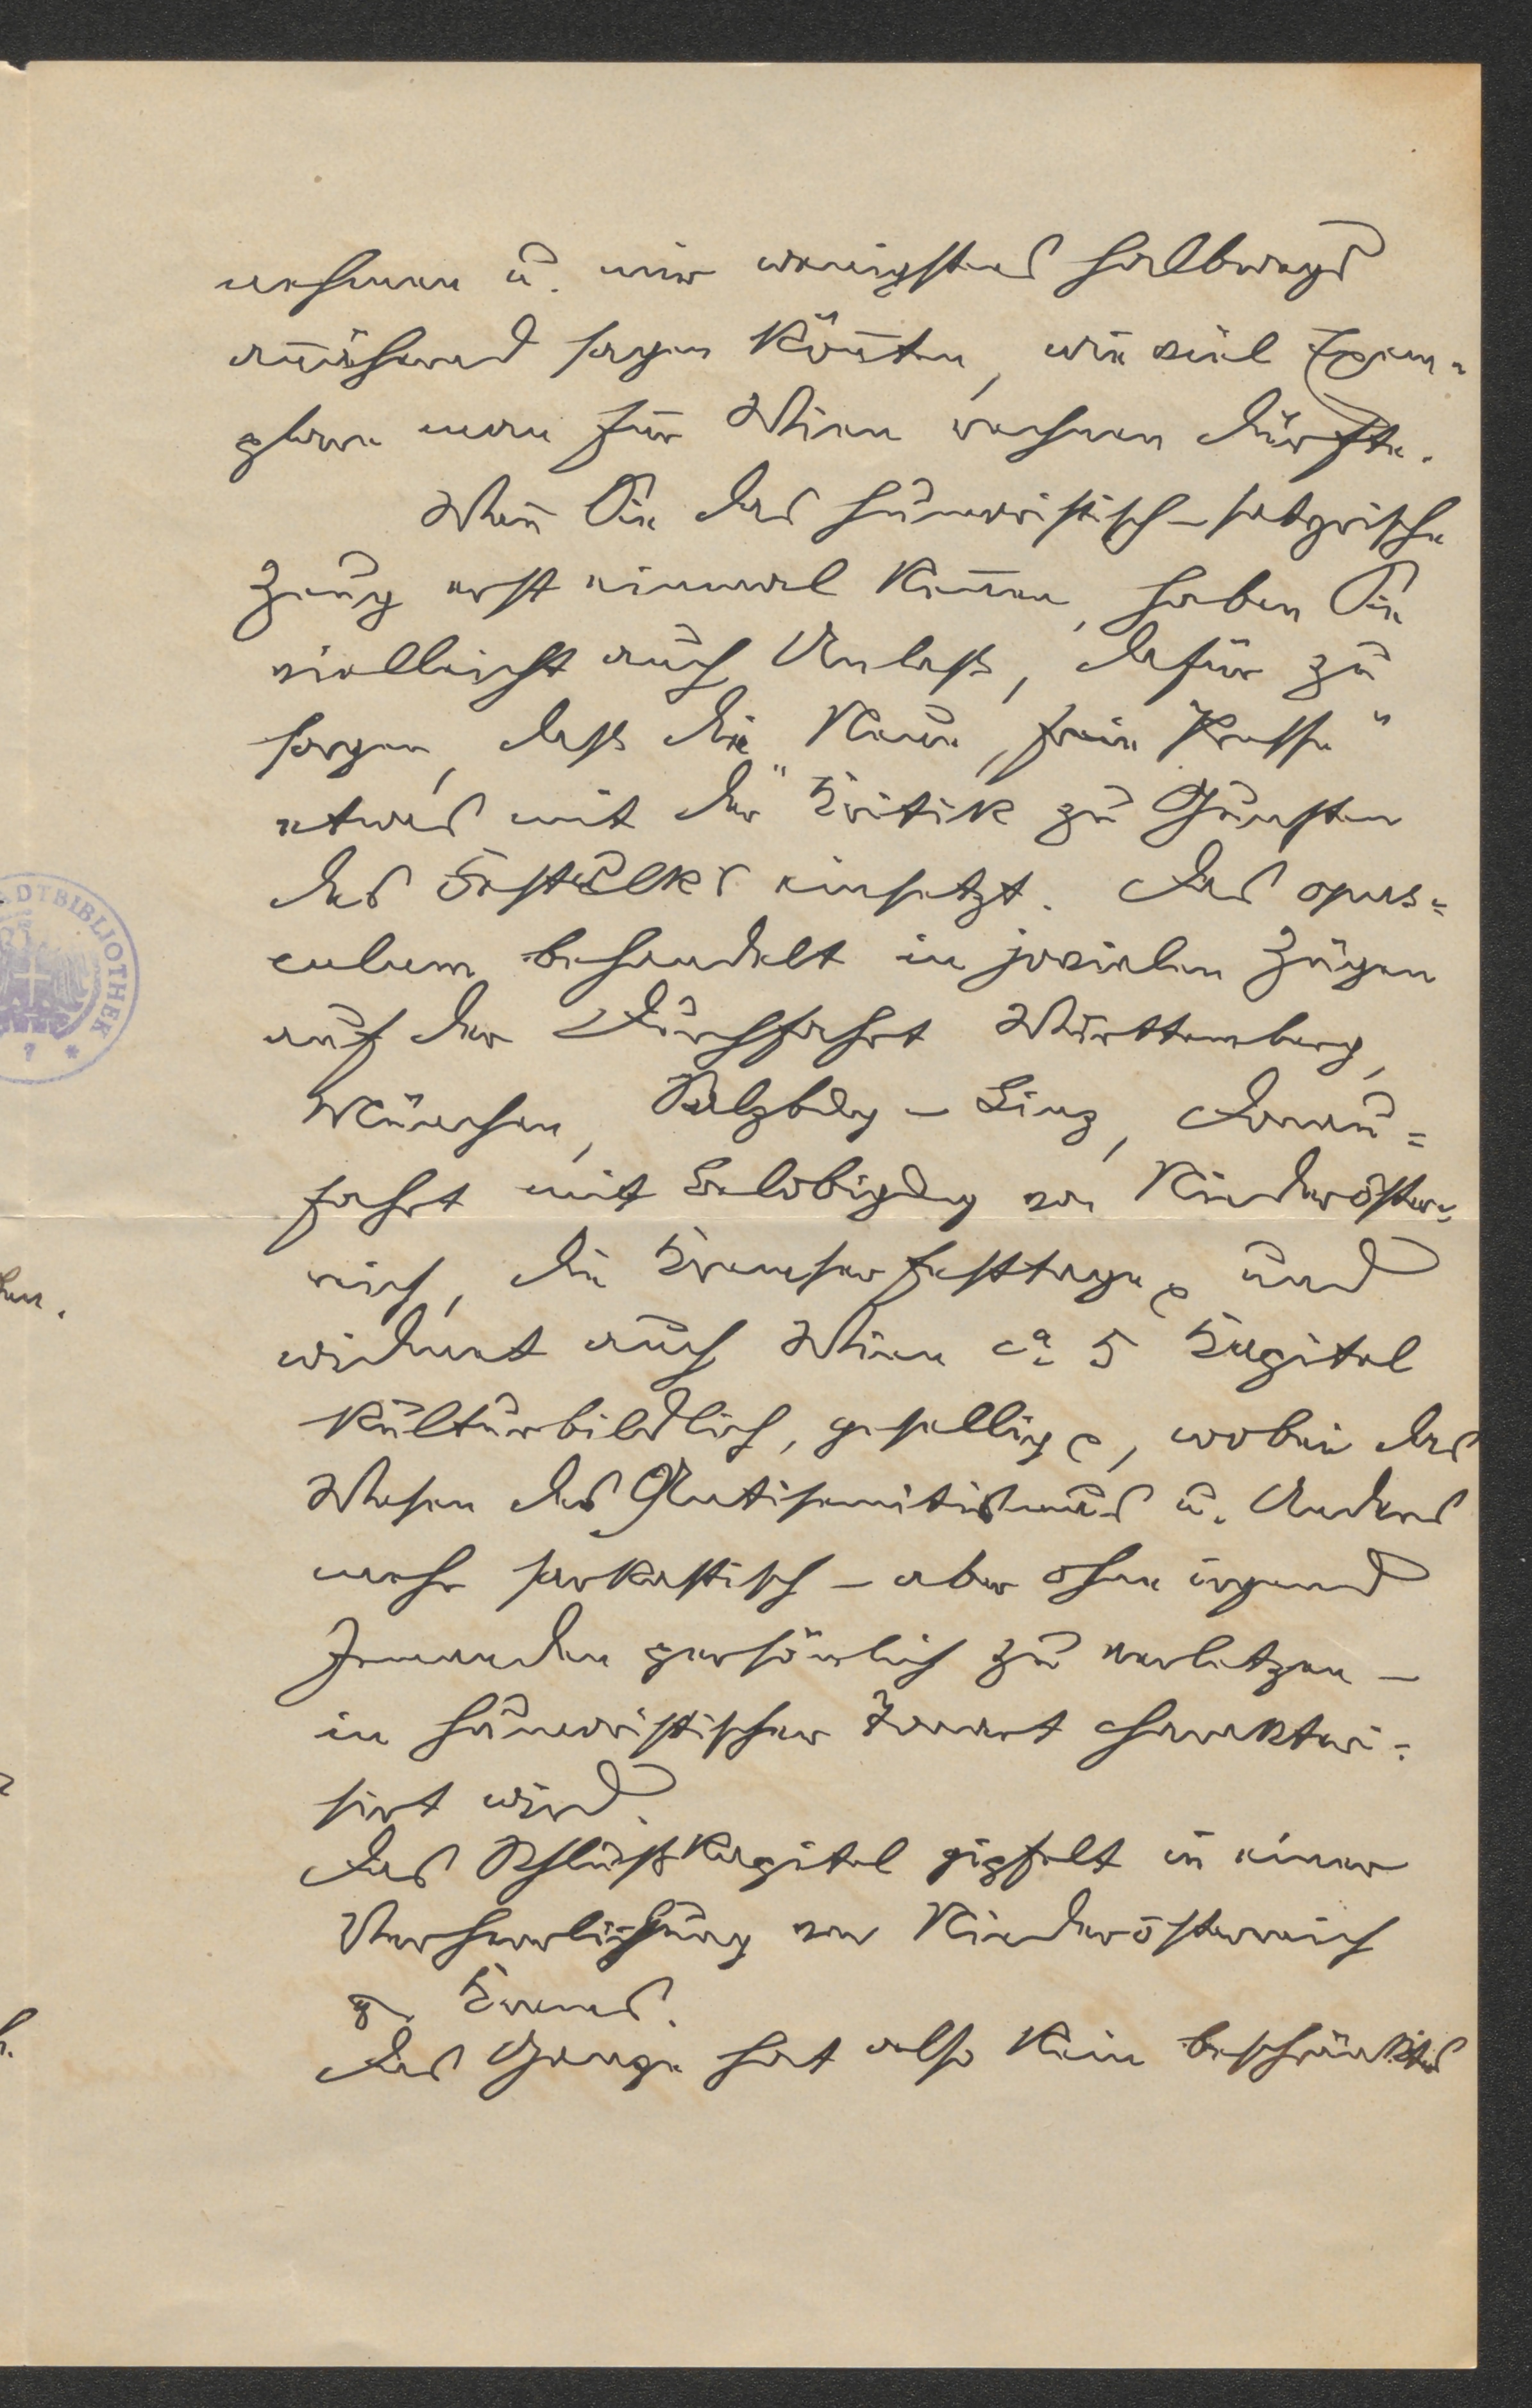 nehmen u. mir wenigstens halbwegs
annähernd sagen könnten, wie viel Exem-
plare man für Wien rechnen dürfte.
Wenn Sie das humoristisch-satyrische
Zeug erst einmal kennen, haben Sie
vielleicht auch Anlaß, dafür zu
sorgen, daß die "Neue freie Presse"
etwas mit der Kritik zu Gunsten
des einsetzt. Das opus=
culum behandelt in jovialen Zügen
auf der Durchfahrt Württemberg,
München, Salzburg - Linz, Donau=
fahrt mit Belobigung von Niederöster=
reich, die Kremser Festtage und
widmet auch Wien ca 5 Kapitel
kulturbildlich, gesellig, wobei das
Wesen des Antisemitismus u. Anders
mehr sarkastisch - aber ohne irgend
Jemanden persönlich zu verletzen -
in humoristischer Form charakteri=
sirt wird.
Das Schlußkapitel gipfelt in einer
Verherrlichung von Niederösterreich
Krems.
Das Ganze hat also kein beschränktes
STADTBIBLIOTHEK